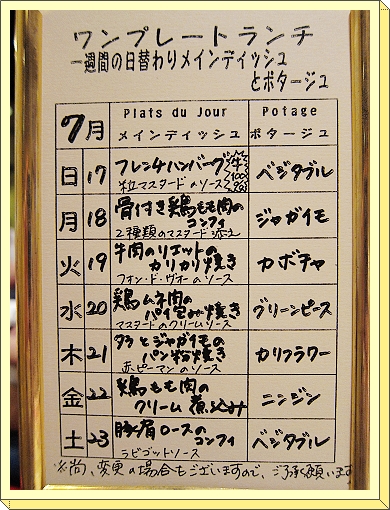 ワンプレートランチ
一週間の日替わりメインディッシュ
とポタージュ
7月 Plats du Jour Potage
メインディッシュ ポタージュ
日 17 フレンチハンバーグ 牛100% ベジタブル
粒マスタードのソース
月 18 骨付き鶏もも肉の ジャガイモ
コンフィ
2種類のマスタード添え
火 19 牛肉のリエットの カボチャ
カリカリ焼き
フォン・ド・ヴォーのソース
水 20 鶏ムネ肉の グリーンピース
パイ包み焼き
マスタードのクリームソース
木 21 タラとジャガイモの カリフラワー
パン粉焼き
赤ピーマンのソース
金 22 鶏もも肉の ニンジン
クリーム煮込み
土 23 豚肩ロースの ベジタブル
コンフィ
ラビゴットソース
※尚、変更の場合もございますので、ご了承願います